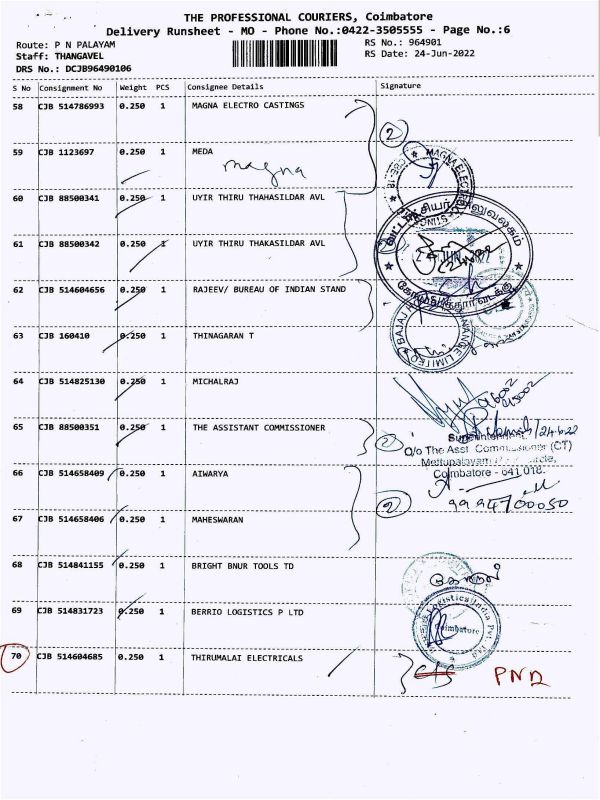 THE PROFESSIONAL COURIERS, Coimbatore
Delivery Runsheet - MO - Phone No.:0422-3505555 - Page No.:6
Route: P N PALAYAM RS No.: 964901
Staff: THANGAVEL RS Date: 24-Jun-2022
DRS No.: DCJB96490106
S No Consignment No Weight PCS Consignee Details Signature
58 CJB 514786993 0.250 1 MAGNA ELECTRO CASTINGS
2
59 CJB 1123697 0.250 1 MEDA
magna
60 CJB 88500341 0.250 1 UYIR THIRU THAHASILDAR AVL
61 CJB 88500342 0.250 1 UYIR THIRU THAKASILDAR AVL
62 CJB 514604656 0.250 1 RAJEEV/ BUREAU OF INDIAN STAND
63 CJB 160410 0.250 1 THINAGARAN T
64 CJB 514825130 0.250 1 MICHALRAJ
65 CJB 88500351 0.250 1 THE ASSISTANT COMMISSIONER
2
24.6.22
Superintendent
O/o The Asst. Commissioner (CT)
Mettupalayam Road Circle,
Coimbatore - 641 018.
66 CJB 514658409 0.250 1 AIWARYA
2
9994700050
67 CJB 514658406 0.250 1 MAHESWARAN
68 CJB 514841155 0.250 1 BRIGHT BNUR TOOLS TD
69 CJB 514831723 0.250 1 BERRIO LOGISTICS P LTD
Logistics India Pvt Ltd
Coimbatore
70 CJB 514604685 0.250 1 THIRUMALAI ELECTRICALS
PND